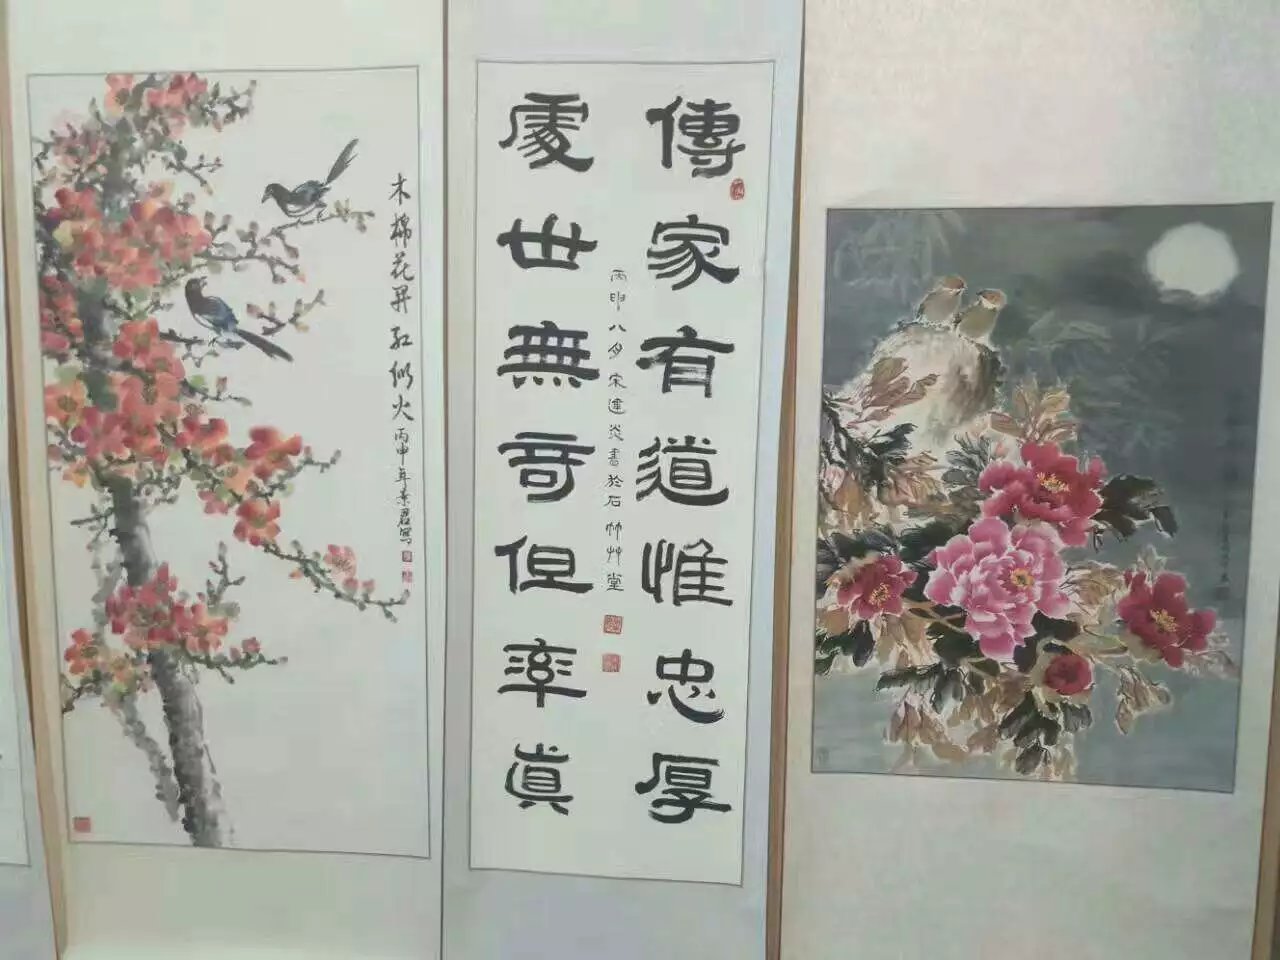 木棉花開紅似火
丙申年景君寫
傳家有道惟忠厚
處世無奇但率真
丙申八月宋建炎書於石竹艸堂